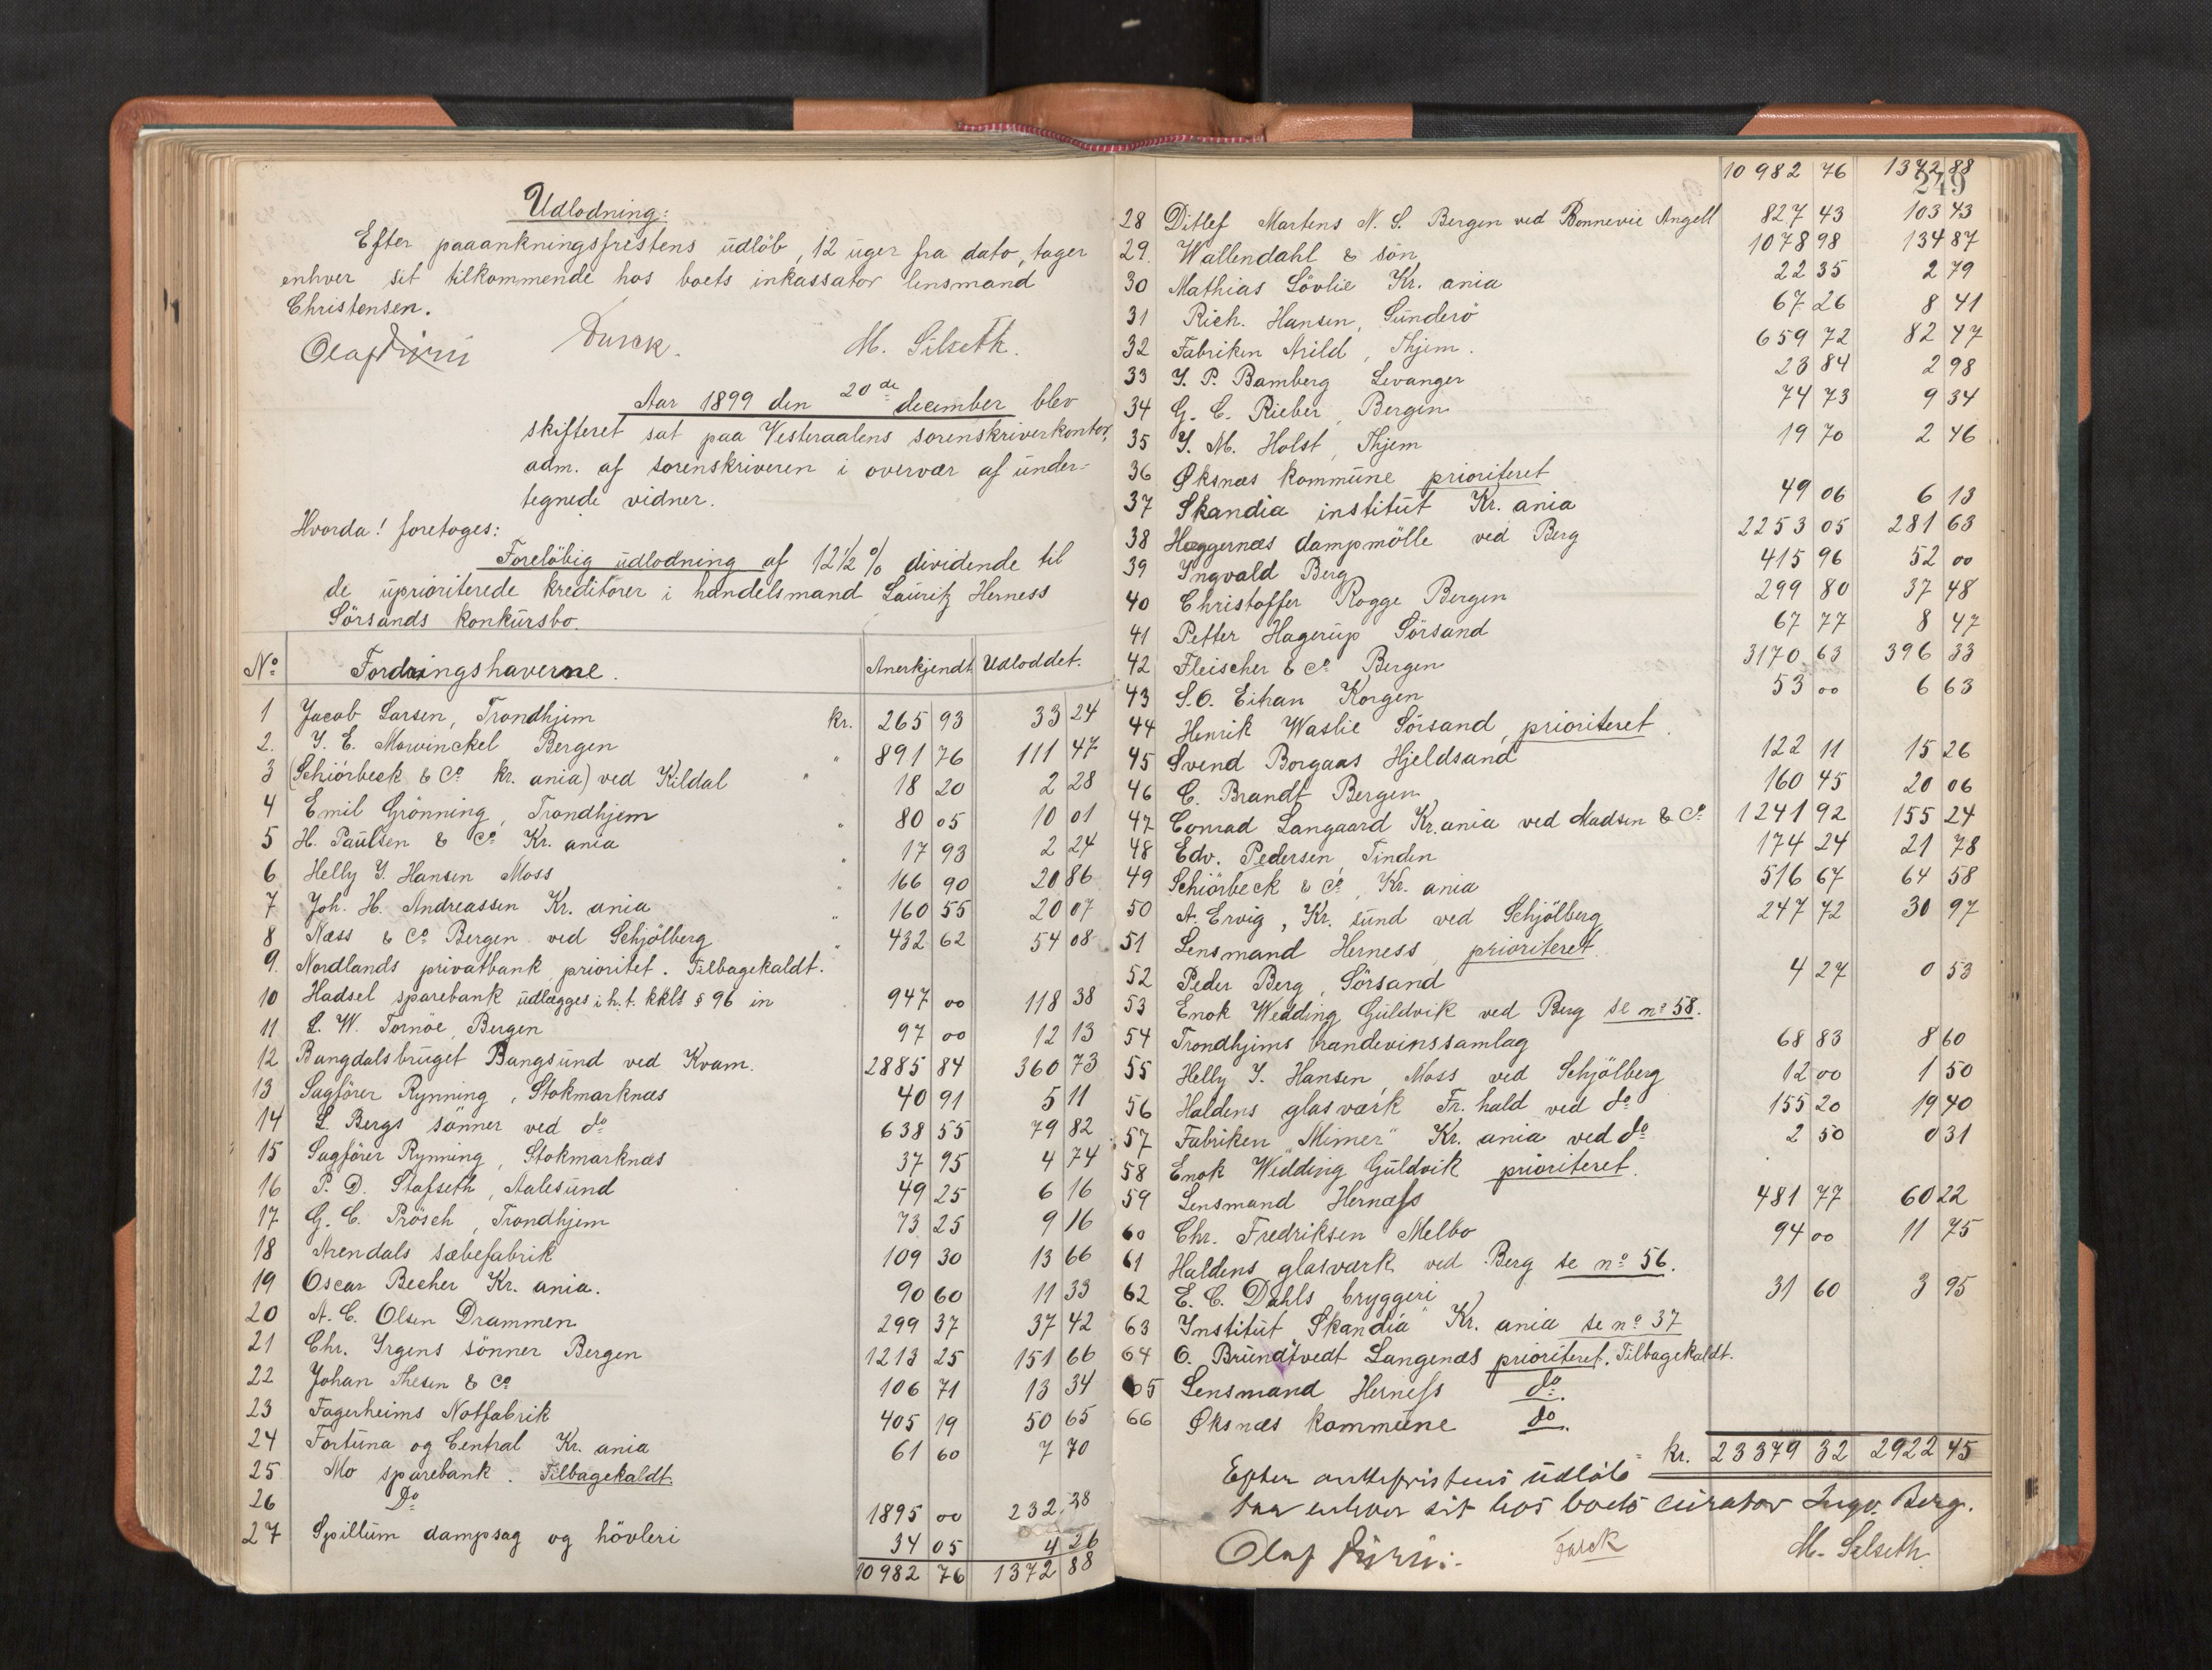 Udlodning:
Efter paaankningsfristens udløb, 12 uger fra dato, tager
enhver sit tilkommende hos boets inkassator lensmand
Christensen.
M. Selseth.
Aar 1899 den 20de december blev
skifteret sat paa Vesteraalens sorenskriverkontor,
adm. af sorenskriveren i overvær af under-
tegnede vidner.
Hvorda! foretoges:
Foreløbig udlodning af 12 1/2 % dividende til
de upriorterede kreditorer i handelsmand Lauritz Herness
Sørsands konkursbo.
No Fordringshaverne. Anerkjendt Udloddet.
1 Jacob Larsen, Trondhjem kr. 265 93 33 24
2. J. E. Mowinckel Bergen " 891 76 111 47
3 (Schiørbeck & Co kr. ania) ved Kildal " 18 20 2 28
4 Emil Grønning, Trondhjem " 80 05 10 01
5 H. Paulsen & Co Kr. ania " 17 93 2 24
6 Helly J. Hansen Moss " 166 90 20 86
7 Joh. H. Andreassen Kr. ania " 160 55 20 07
8 Næss & Co Bergen ved Schjølberg " 432 62 54 08
9. Nordlands privatbank prioritet. Tilbagekaldt.
10 Hadsel sparebank udlægges i h. t. kkls § 96 in 947 00 118 38
11 L. W. Tornøe, Bergen 97 00 12 13
12 Bangdalsbruget Bangsund ved Kvam. 2885 84 360 73
13 Sagfører Rynning, Stokmarknæs 40 91 5 11
14 L. Bergs sønner ved do 638 55 79 82
15 Sagfører Rynning, Stokmarknæs 37 95 4 74
16 P. D. Stafseth, Aalesund 49 25 6 16
17 G. C. Prösch, Trondhjem 73 25 9 16
18 Arendals sæbefabrik 109 30 13 66
19 Oscar Becher Kr. ania. 90 60 11 33
20 A. C. Olsen Drammen 299 37 37 42
21 Chr. Irgens sønner Bergen 1213 25 151 66
22 Johan Thesen & Co 106 71 13 34
23 Fagerheims Notfabrik 405 19 50 65
24 Fortuna og Central Kr. ania 61 60 7 70
25 Mo sparebank. Tilbagekaldt.
26 Do 1895 00 232 38
27 Spillum dampsag og høvleri 34 05 4 26
10982 76 1372 88
10982 76 1372 88
249
28 Ditlef Martens N. S. Bergen ved Bonnevie Angell 827 43 103 43
29. Wallendahl & søn 1078 98 134 87
30 Mathias Løvlie Kr. ania 22 35 2 79
31 Rich. Hansen, Sunderø 67 26 8 41
32 Fabriken Arild, Thjem. 659 72 82 47
33 J. P. Bamberg Levanger 23 84 2 98
34 G. C. Rieber, Bergen 74 73 9 34
35 J. M. Holst, Thjem 19 70 2 46
36 Øksnæs kommune prioriteret
37 Skandia institut Kr. ania 49 06 6 13
38 Hæggernæs dampmølle ved Berg 2253 05 281 63
39 Ingvald Berg 415 96 52 00
40 Christoffer Rogge Bergen 299 80 37 48
41 Petter Hagerup Sørsand 67 77 8 47
42 Fleischer & Co Bergen 3170 63 396 33
43 S. O. Eitran Korgen 53 00 6 63
44 Henrik Waslie Sørsand, prioriteret.
45 Svend Borgaas Hjeldsand 122 11 15 26
46 C. Brandt Bergen 160 45 20 06
47 Conrad Langaard Kr. ania ved Madsen & Co 1241 92 155 24
48 Edv. Pedersen Tinden 174 24 21 78
49 Schiørbeck & Co, Kr. ania 516 67 64 58
50 A. Ervig, Kr. sund ved Schjølberg 247 72 30 97
51 Lensmand Herness, prioriteret.
52 Peder Berg, Sørsand 4 27 0 53
53 Enok Wedding Guldvik ved Berg se no 58.
54 Trondhjems brændevinssamlag 68 83 8 60
55 Helly J. Hansen, Moss ved Schjølberg 12 00 1 50
56 Haldens glasværk Fr. hald ved do 155 20 19 40
57 Fabriken "Mimer" Kr. ania ved do 2 50 0 31
58 Enok Wedding Guldvik prioriteret.
59 Lensmand Herness 481 77 60 22
60 Chr. Fredriksen Melbo 94 00 11 75
61 Haldens glasværk ved Berg se no 56.
62 E. C. Dahls bryggeri 31 60 3 95
63 Institut "Skandia" Kr. ania se no 37
64 O. Brundtvedt Langenæs prioriteret. Tilbagekaldt.
65 Lensmand Herness do.
66 Øksnæs kommune do.
kr. 23379 32 2922 45
Efter ankefristens udløb
taar enhver sit hos boets curator Ingv. Berg.
M. Selseth.